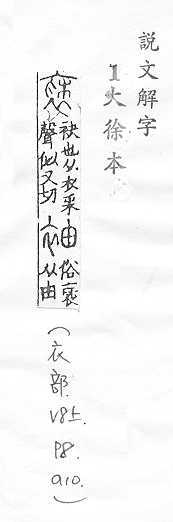 説文解字
1大徐本
褎 袂也从衣采
聲似又切 袖 俗褎
从由
(衣部. V8上. P8. a10.)